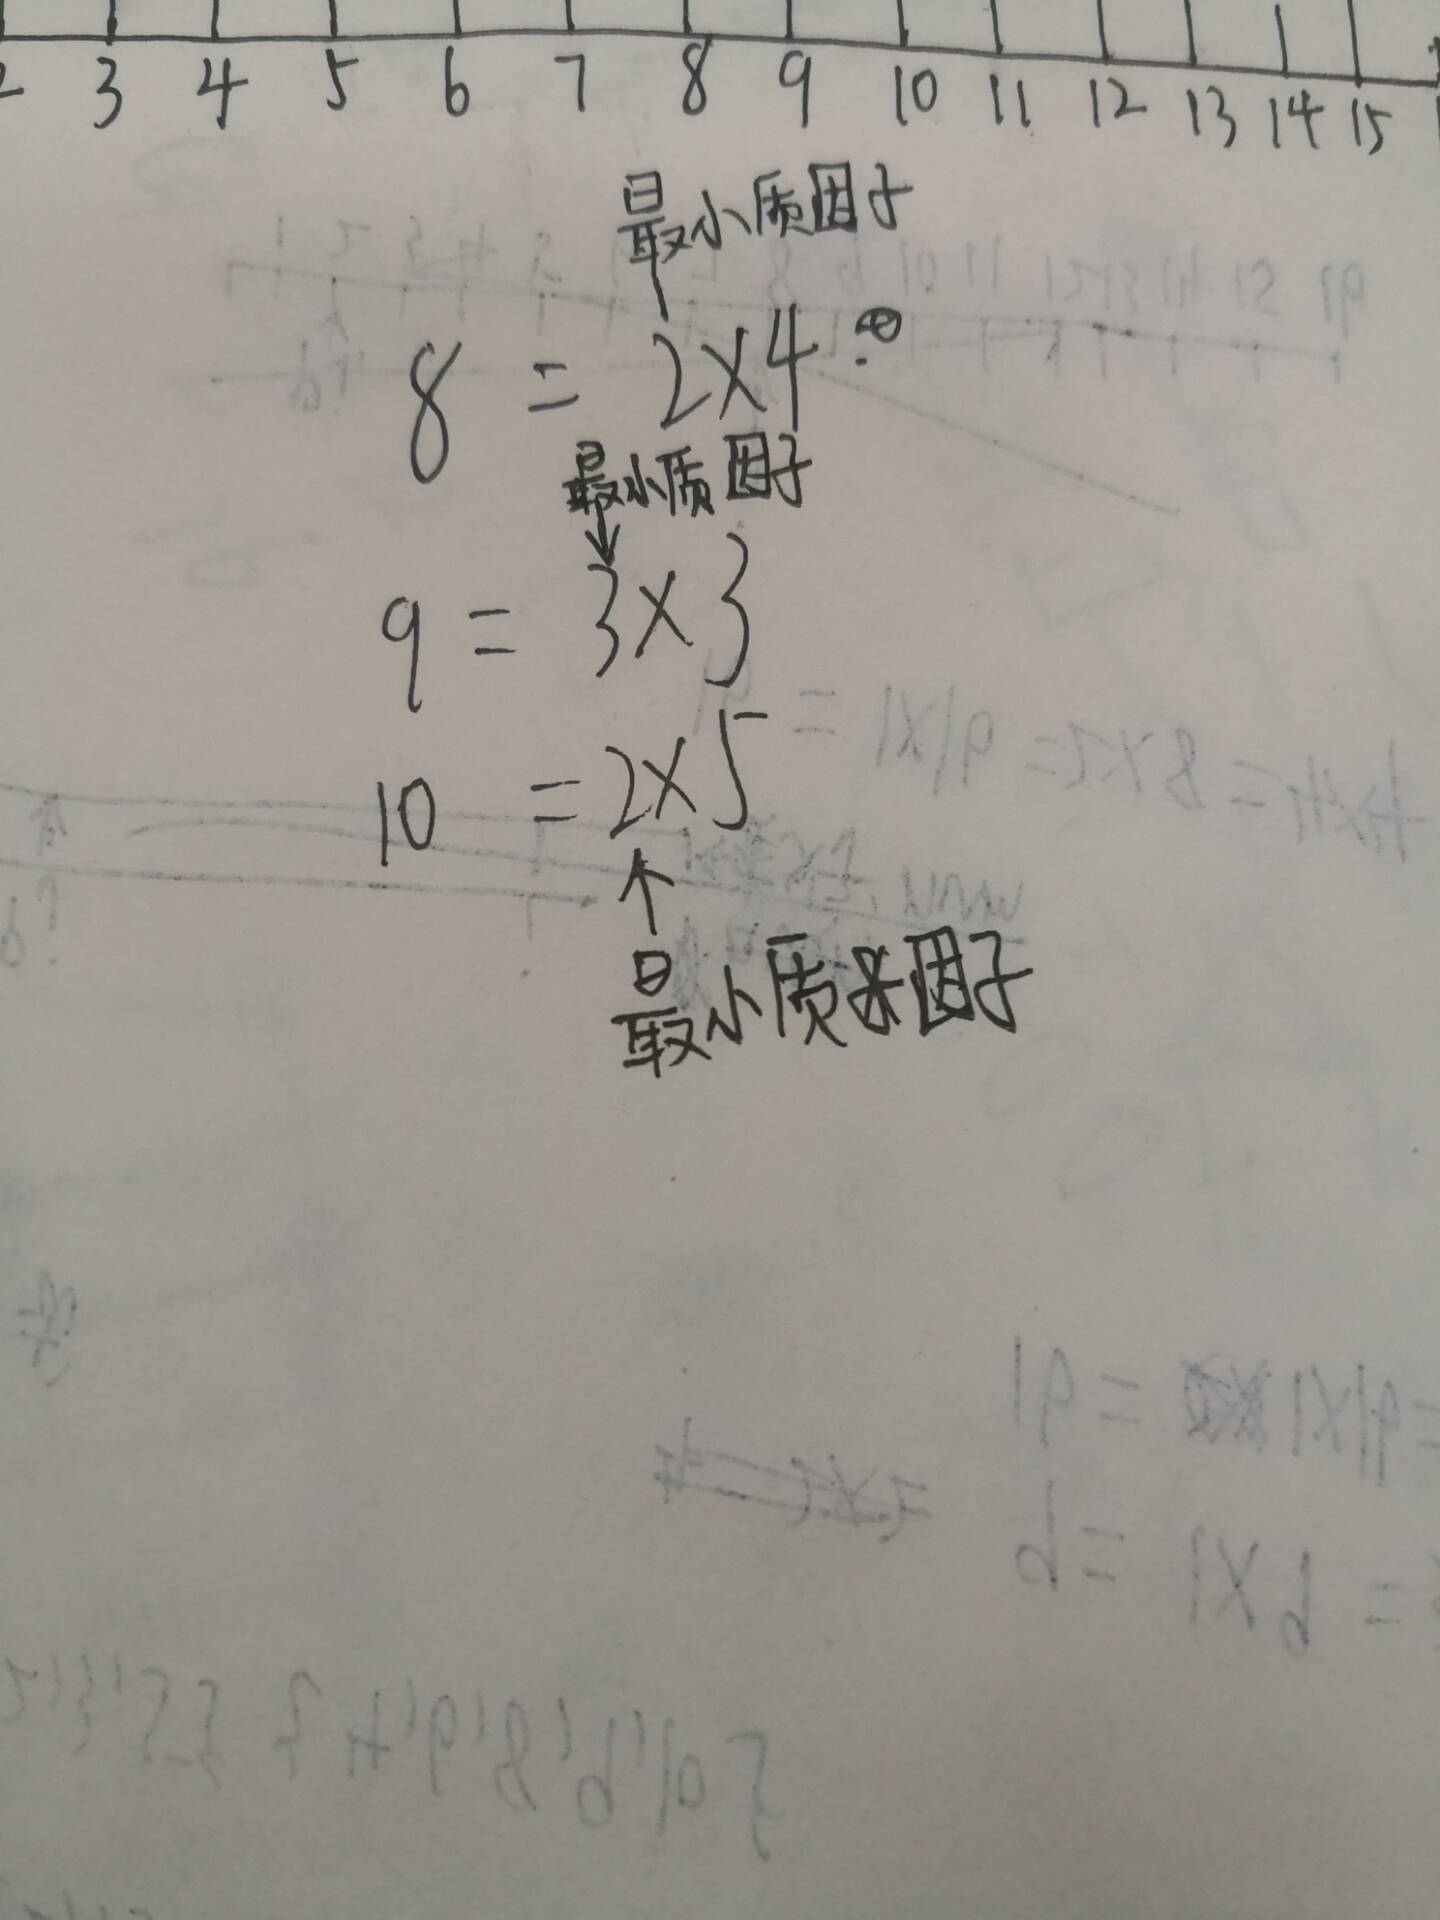 3 4 5 6 7 8 9 10 11 12 13 14 15
最小质因子
8 = 2×4
最小质因子
9 = 3×3
10 = 2×5
最小质因子